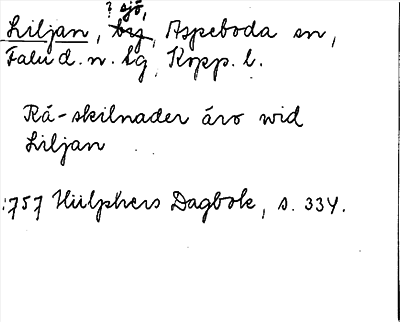 ? sjö,
Liljan, bsg, Aspeboda sn,
Falu d. n. tg, Kopp. l.
Rå-skilnader äro wid
Liljan
1757 Hülphers Dagbok, s. 334.